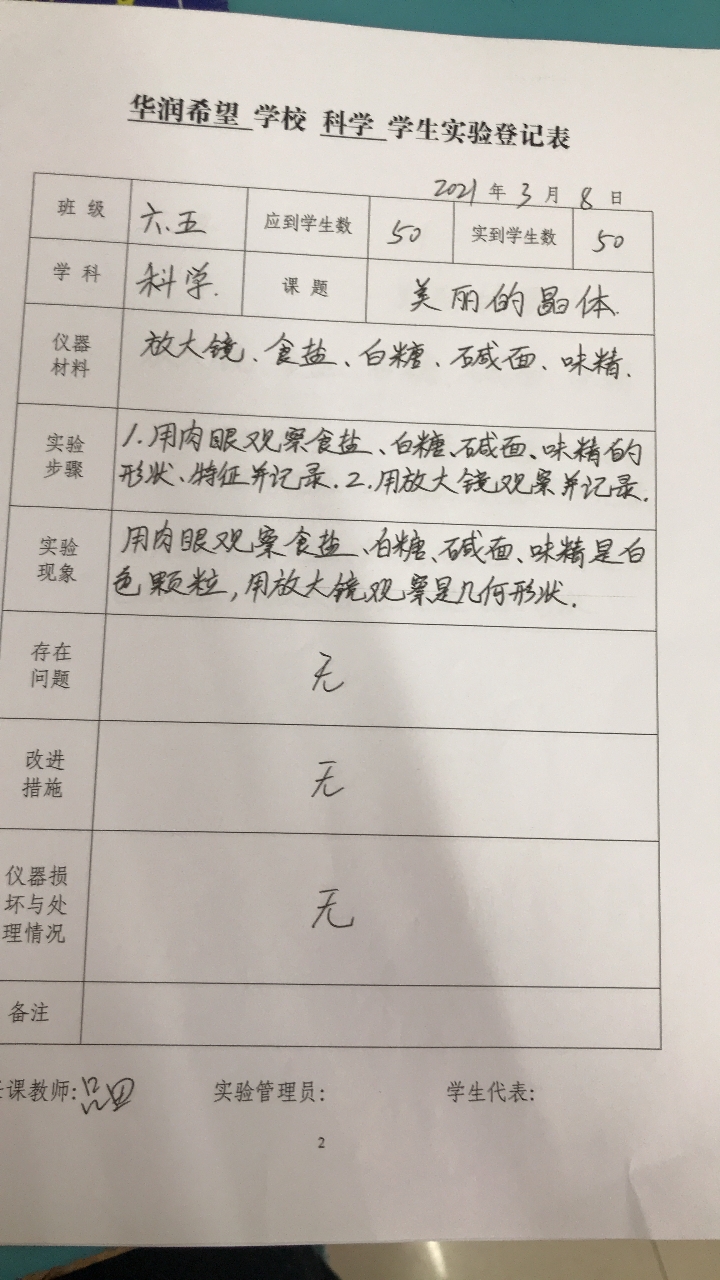 华润希望 学校 科学 学生实验登记表
2021 年 3 月 8 日
班 级 六.五 应到学生数 50 实到学生数 50
学 科 科学. 课 题 美丽的晶体.
仪器
材料
放大镜、食盐、白糖、碱面、味精.
实验
步骤
1.用肉眼观察食盐、白糖、碱面、味精的
形状、特征并记录.2.用放大镜观察并记录.
实验
现象
用肉眼观察食盐、白糖、碱面、味精是白
色颗粒,用放大镜观察是几何形状.
存在
问题
无
改进
措施
无
仪器损
坏与处
理情况
无
备注
课教师: 实验管理员: 学生代表:
2